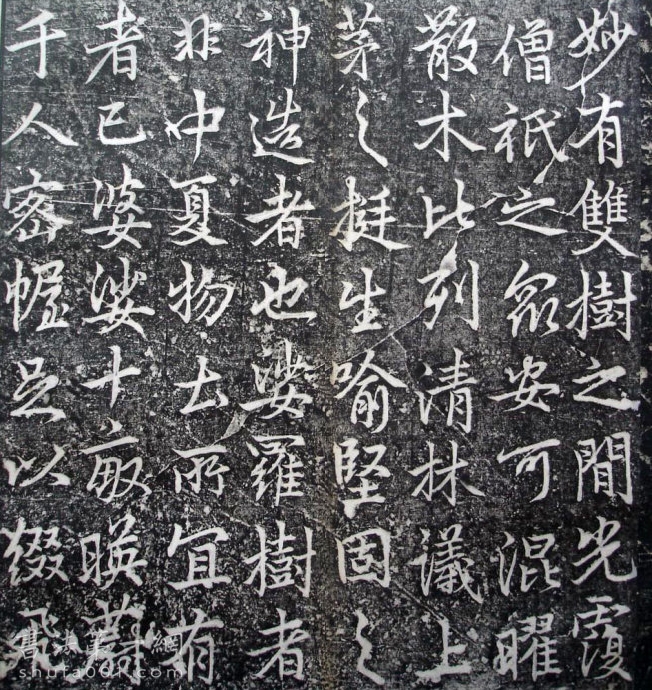 妙有雙樹之間光覆
僧祇之衆安可混曜
散木比列清林議上
茅之挺生喻堅固之
神造者也娑羅樹者
非中夏物土所宜有
者已婆娑十畝暎蔚
千人密幄足以綴飛
書法第一網
shufa001.com